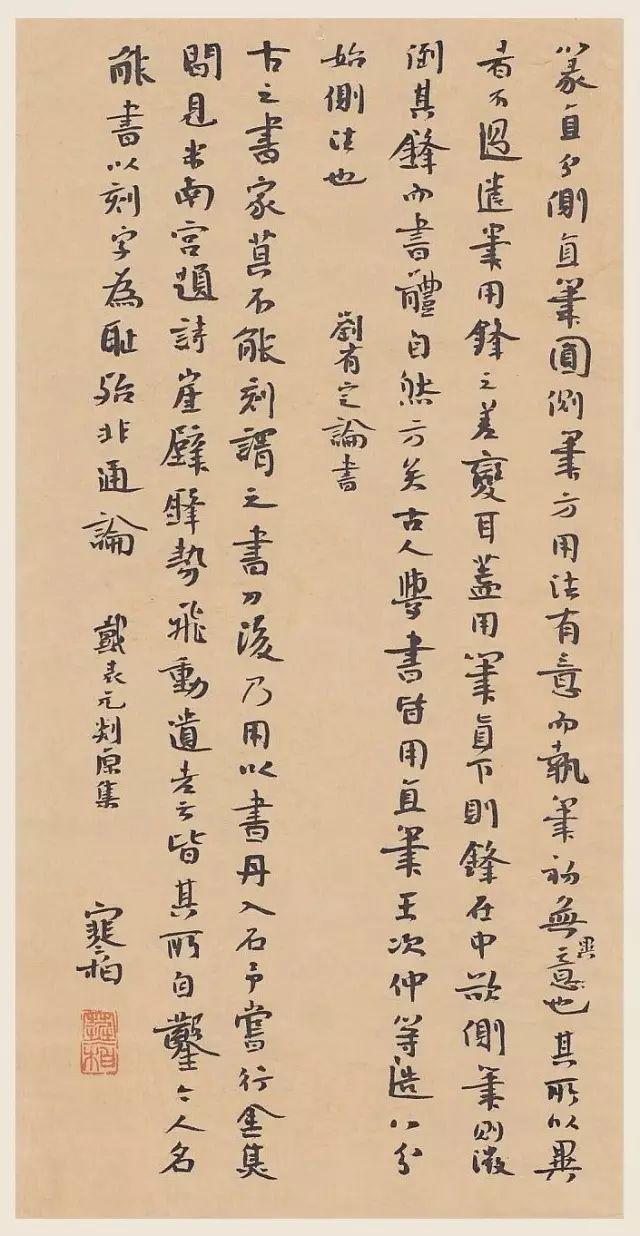 篆直分側直筆圓側筆方用法有意而執筆初無意也其所以異
異
者不過遣筆用鋒之差變耳蓋用筆直下則鋒在中欲側筆則微
倒其鋒而書體自然方矣古人學書皆用直筆王次仲等造八分
始側法也
劉有定論書
古之書家莫不能刻謂之書刀後乃用以書丹入石予嘗行金焦
間見米南宮題詩崖壁鋒勢飛動遺老云皆其所自鑿今人名
能書以刻字為恥殆非通論
戴表元剡原集
寒柏